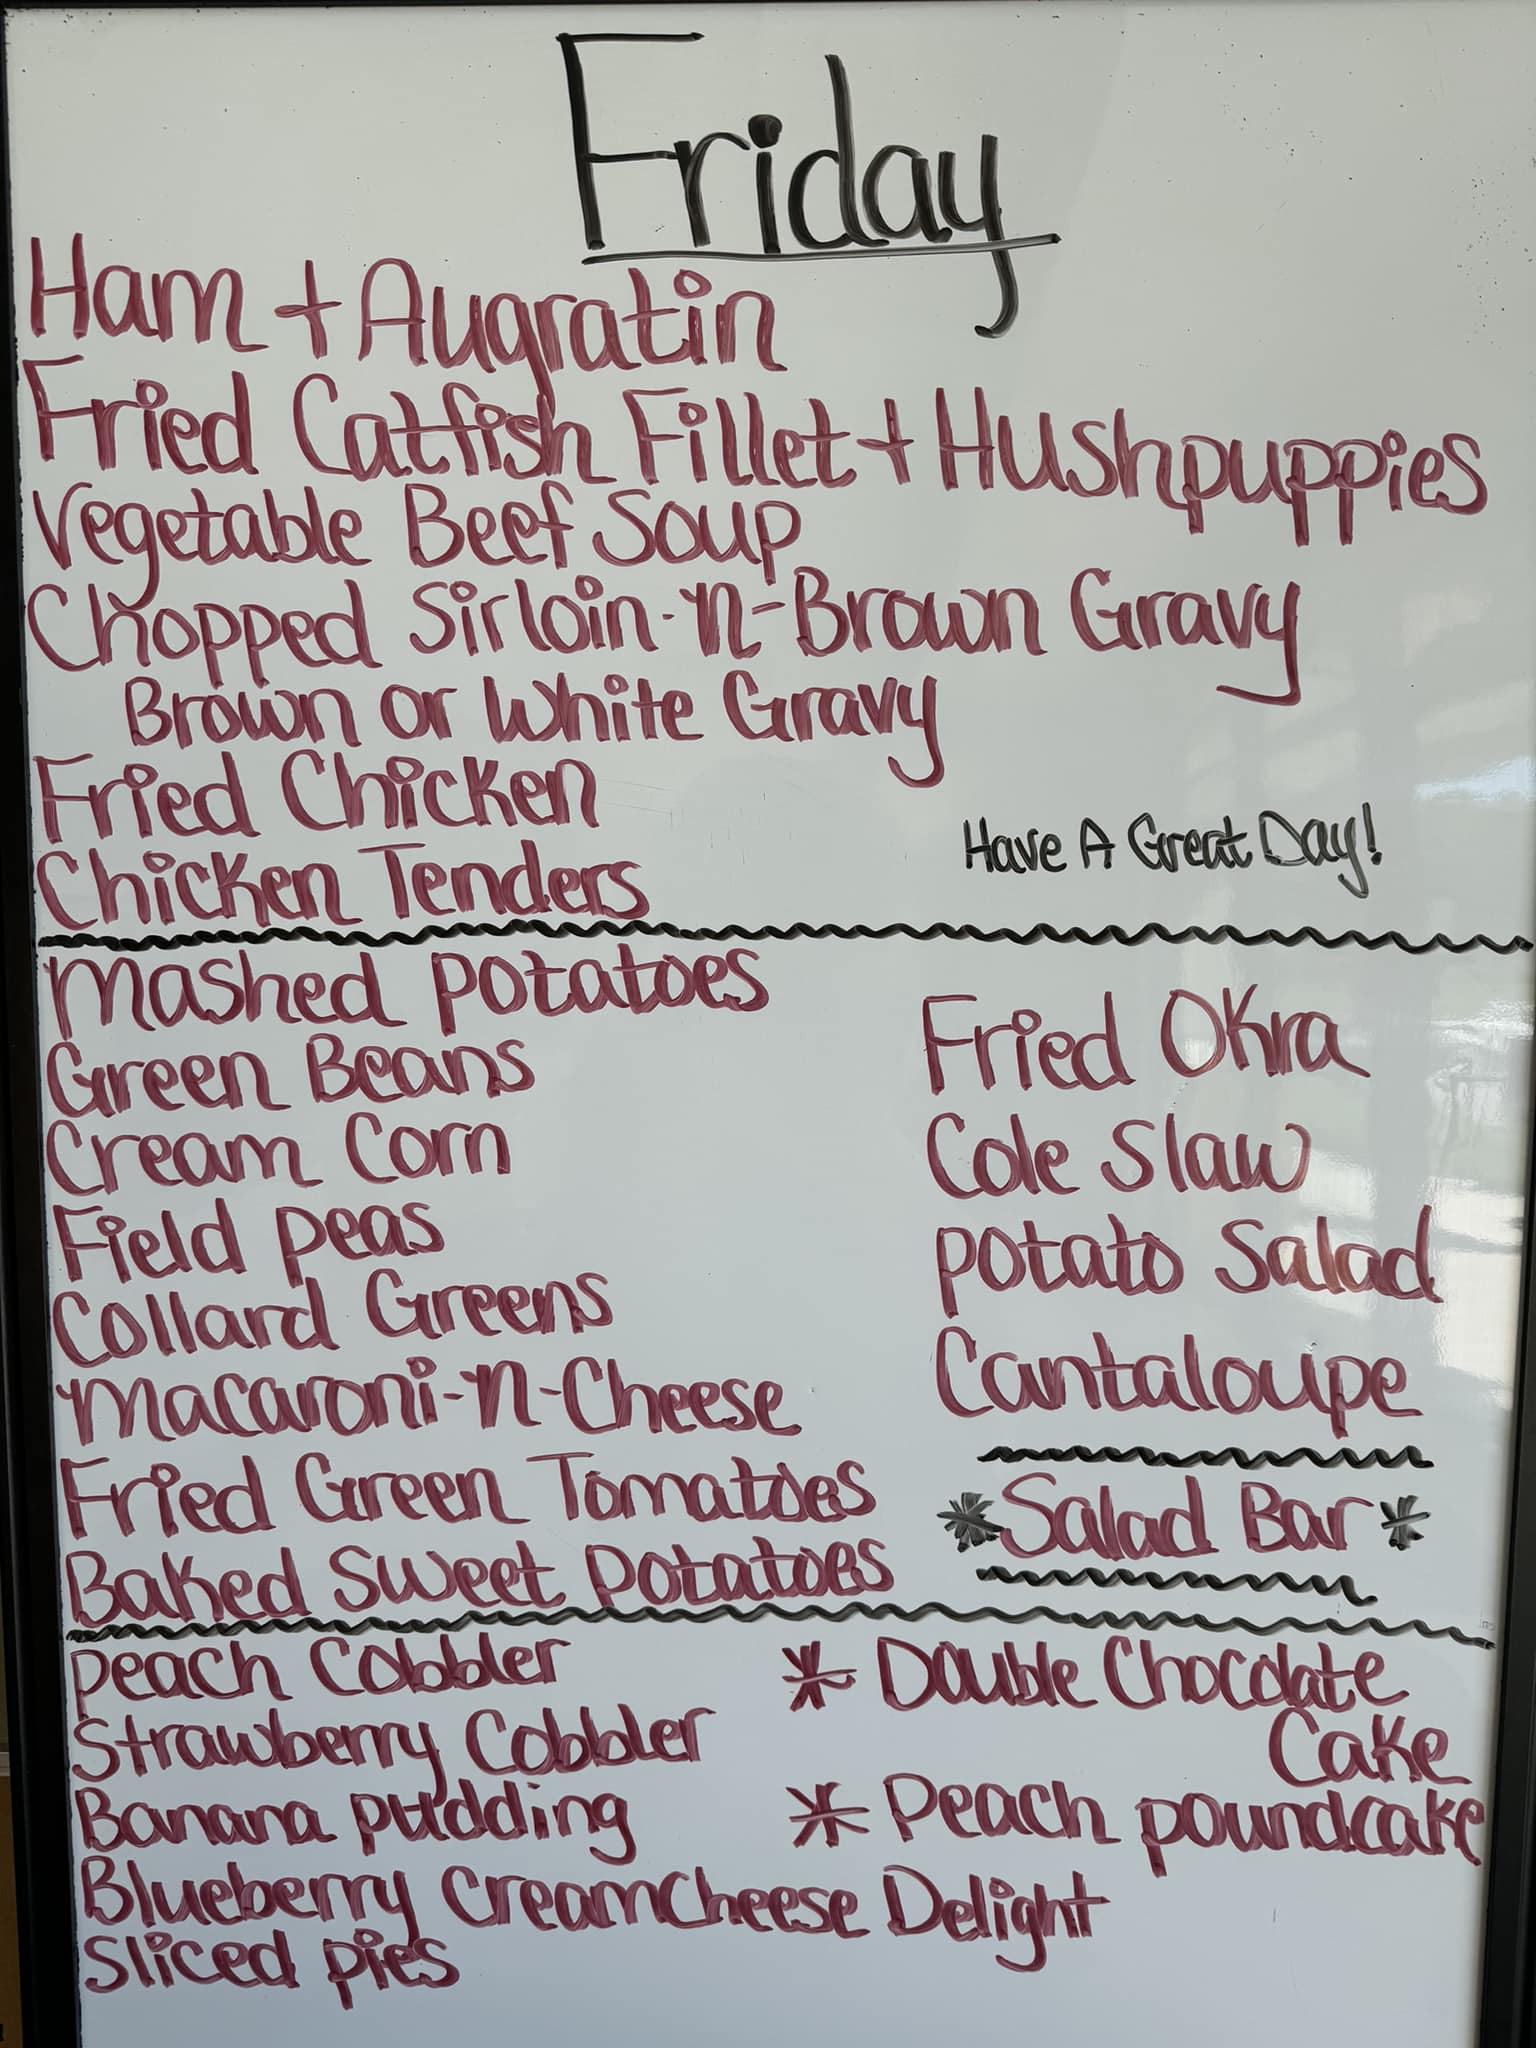 Friday
Ham + Augratin
Fried Catfish Fillet + Hushpuppies
Vegetable Beef Soup
Chopped Sirloin-n-Brown Gravy
Brown or White Gravy
Fried Chicken
Chicken Tenders
Have A Great Day!
Mashed Potatoes
Green Beans
Cream Corn
Field Peas
Collard Greens
Macaroni-n-Cheese
Fried Green Tomatoes
Baked Sweet Potatoes
Fried Okra
Cole Slaw
Potato Salad
Cantaloupe
*Salad Bar*
Peach Cobbler
Strawberry Cobbler
Banana Pudding
Blueberry Creamcheese Delight
Sliced Pies
* Double Chocolate
Cake
* Peach Poundcake